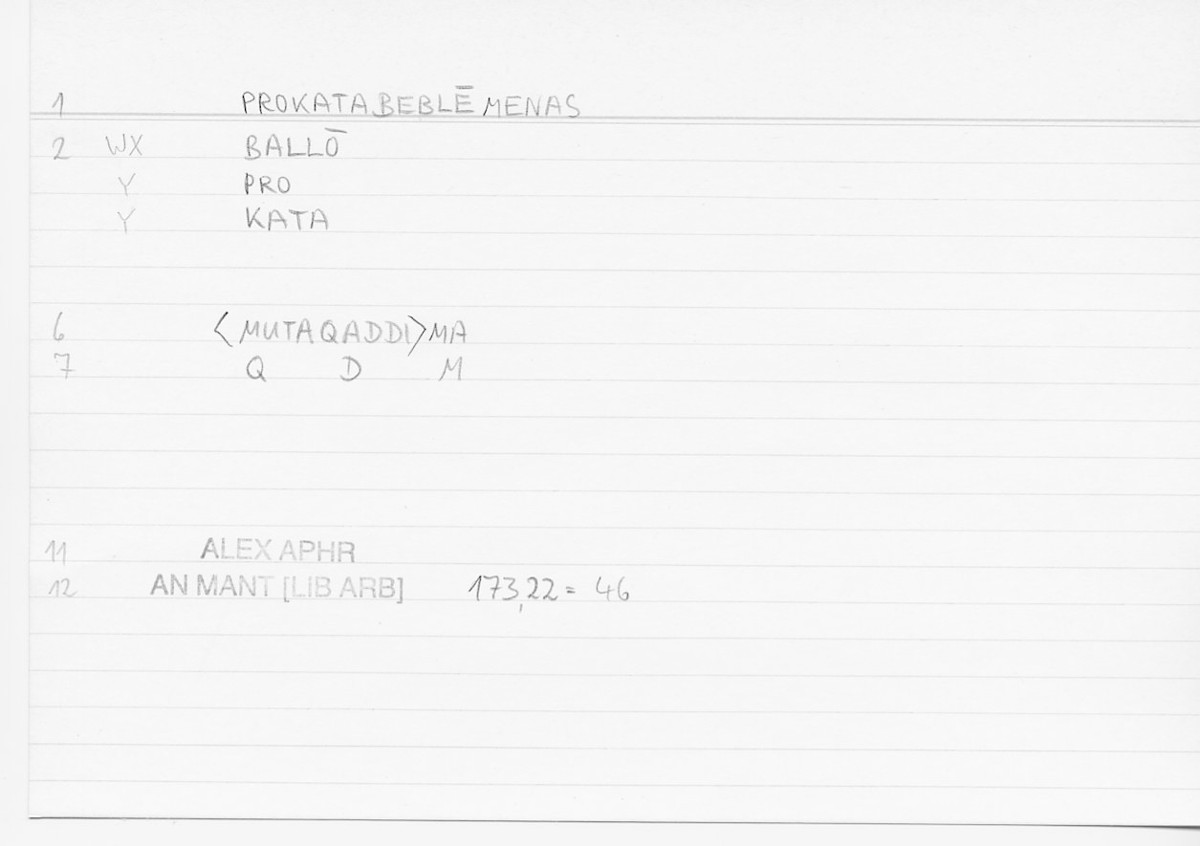 1 PROKATABEBLĒMENAS
2 WX BALLŌ
Y PRO
Y KATA
6 <MUTAQADDI>MA
7 Q D M
11 ALEX APHR
12 AN MANT [LIB ARB] 173,22 = 46